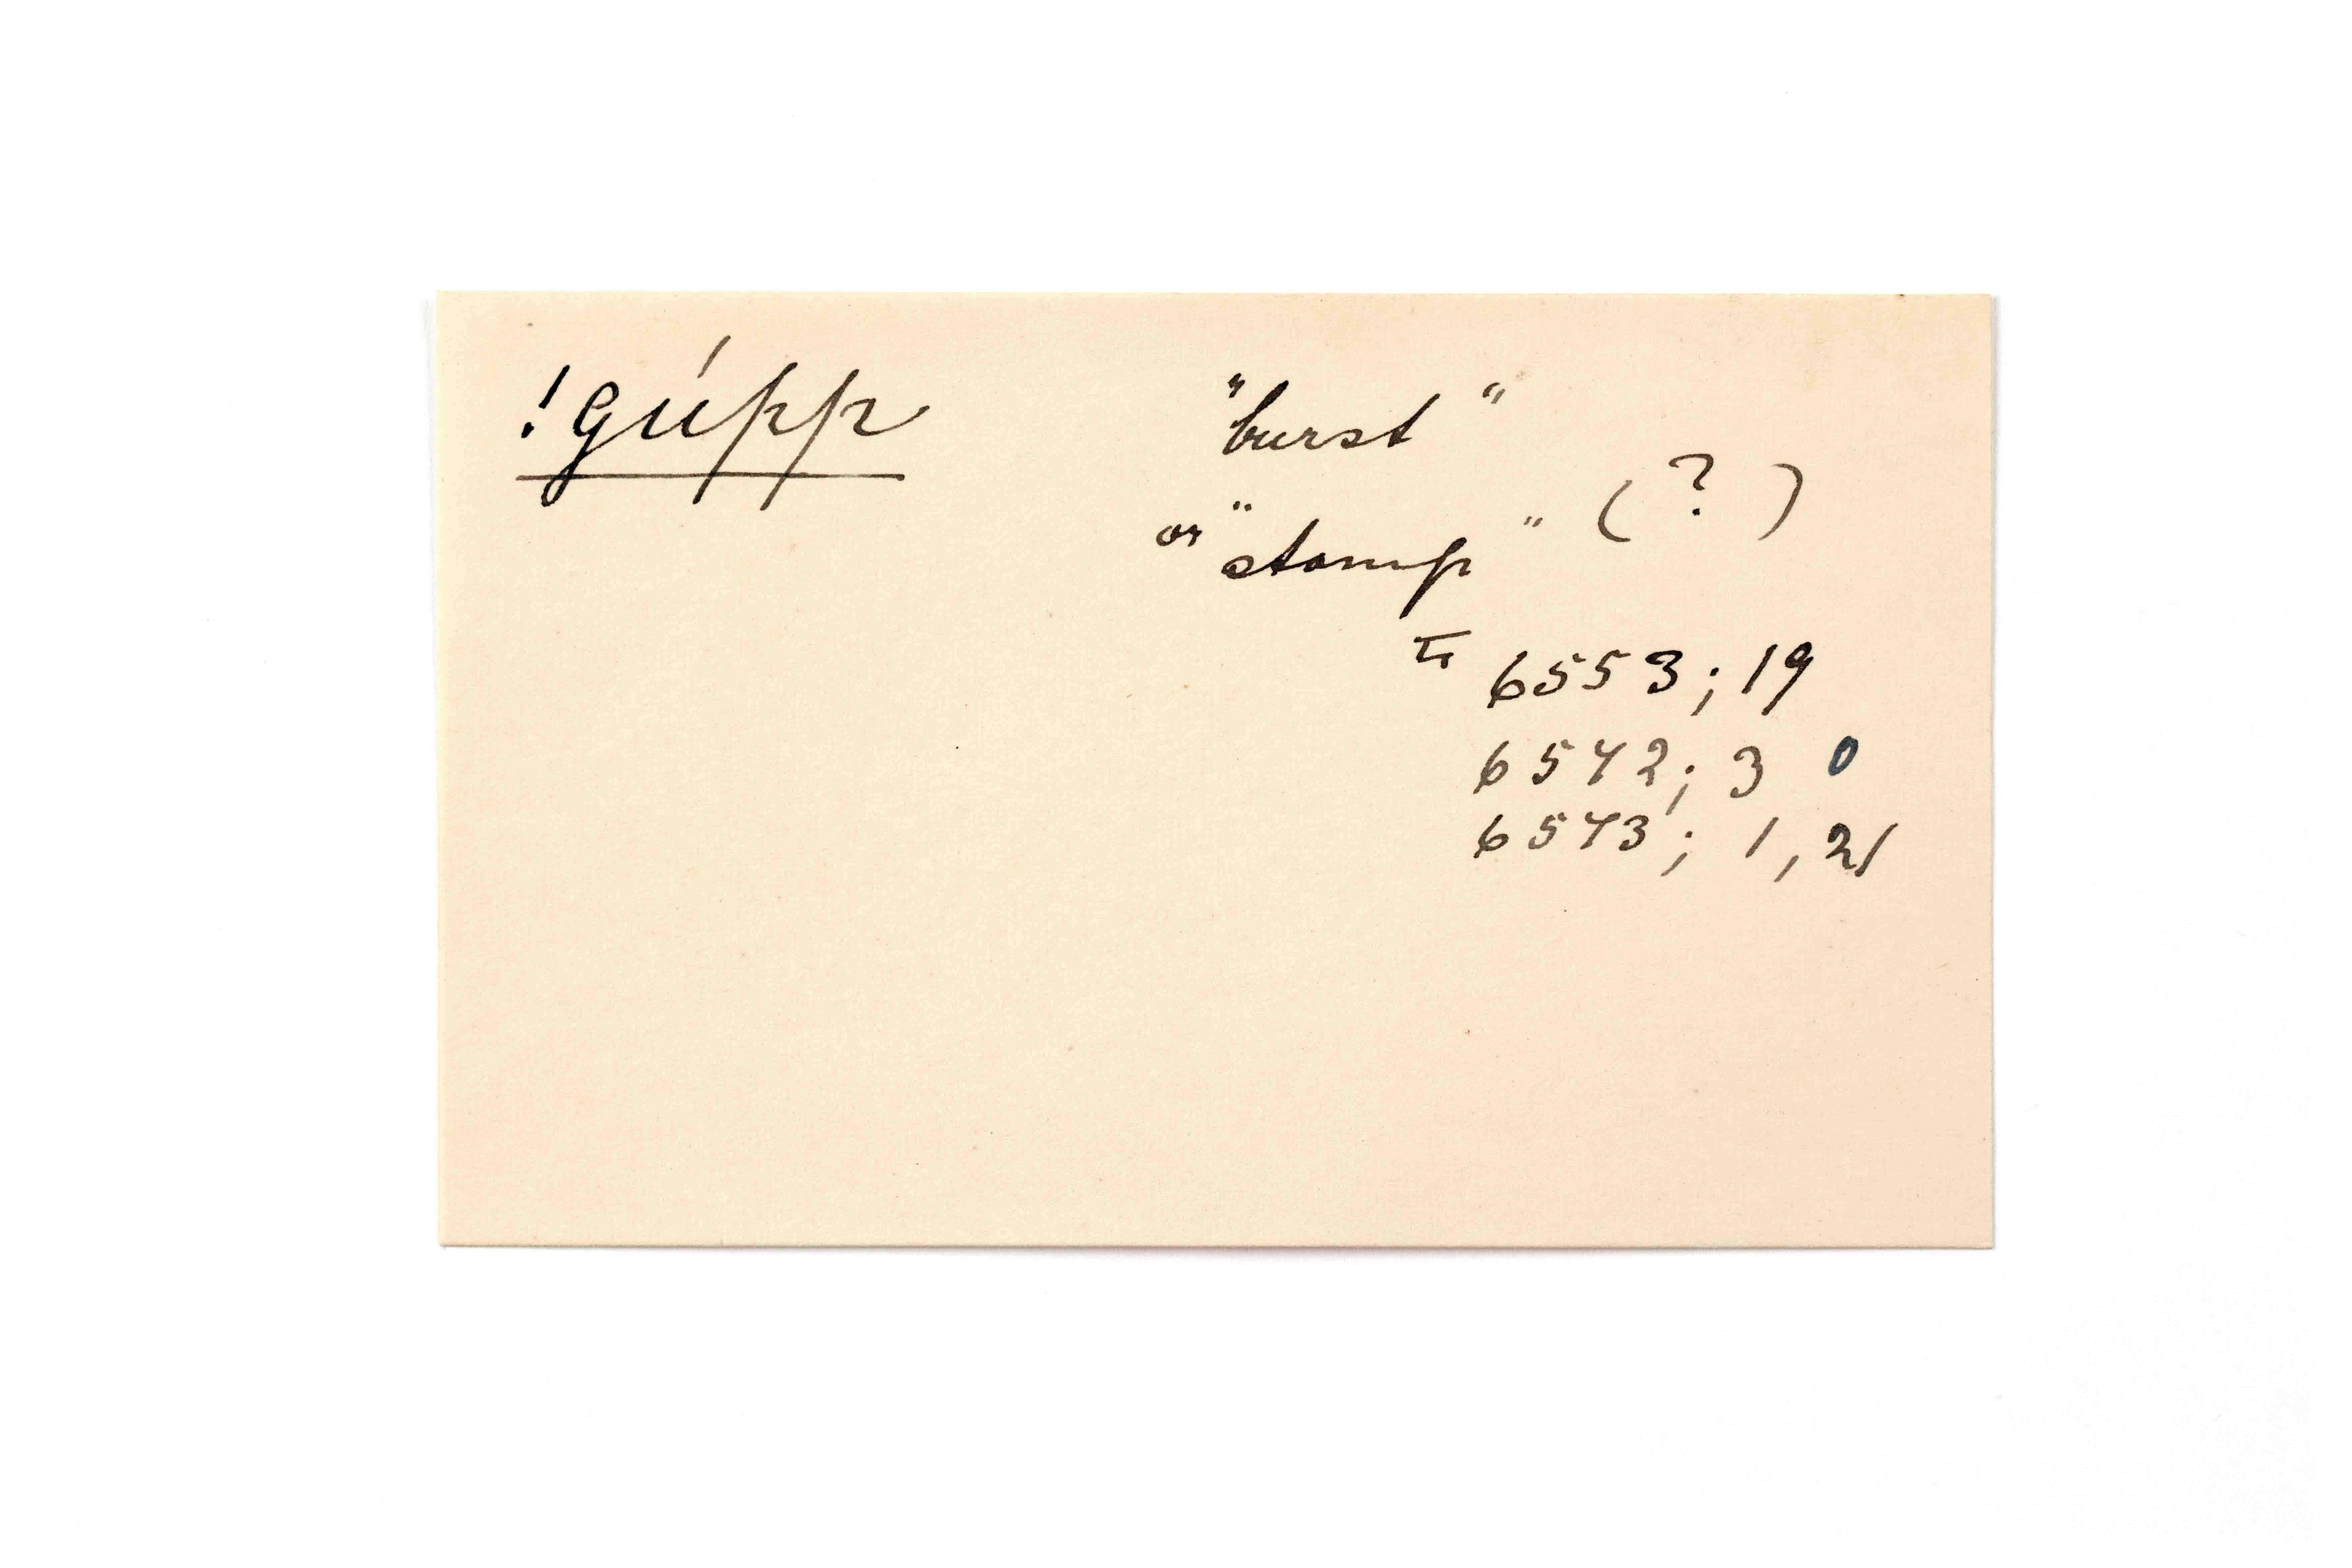 !gúpp "burst"
or "stamp" (?)
6553; 19
6542; 3 0
6543; 1, 21